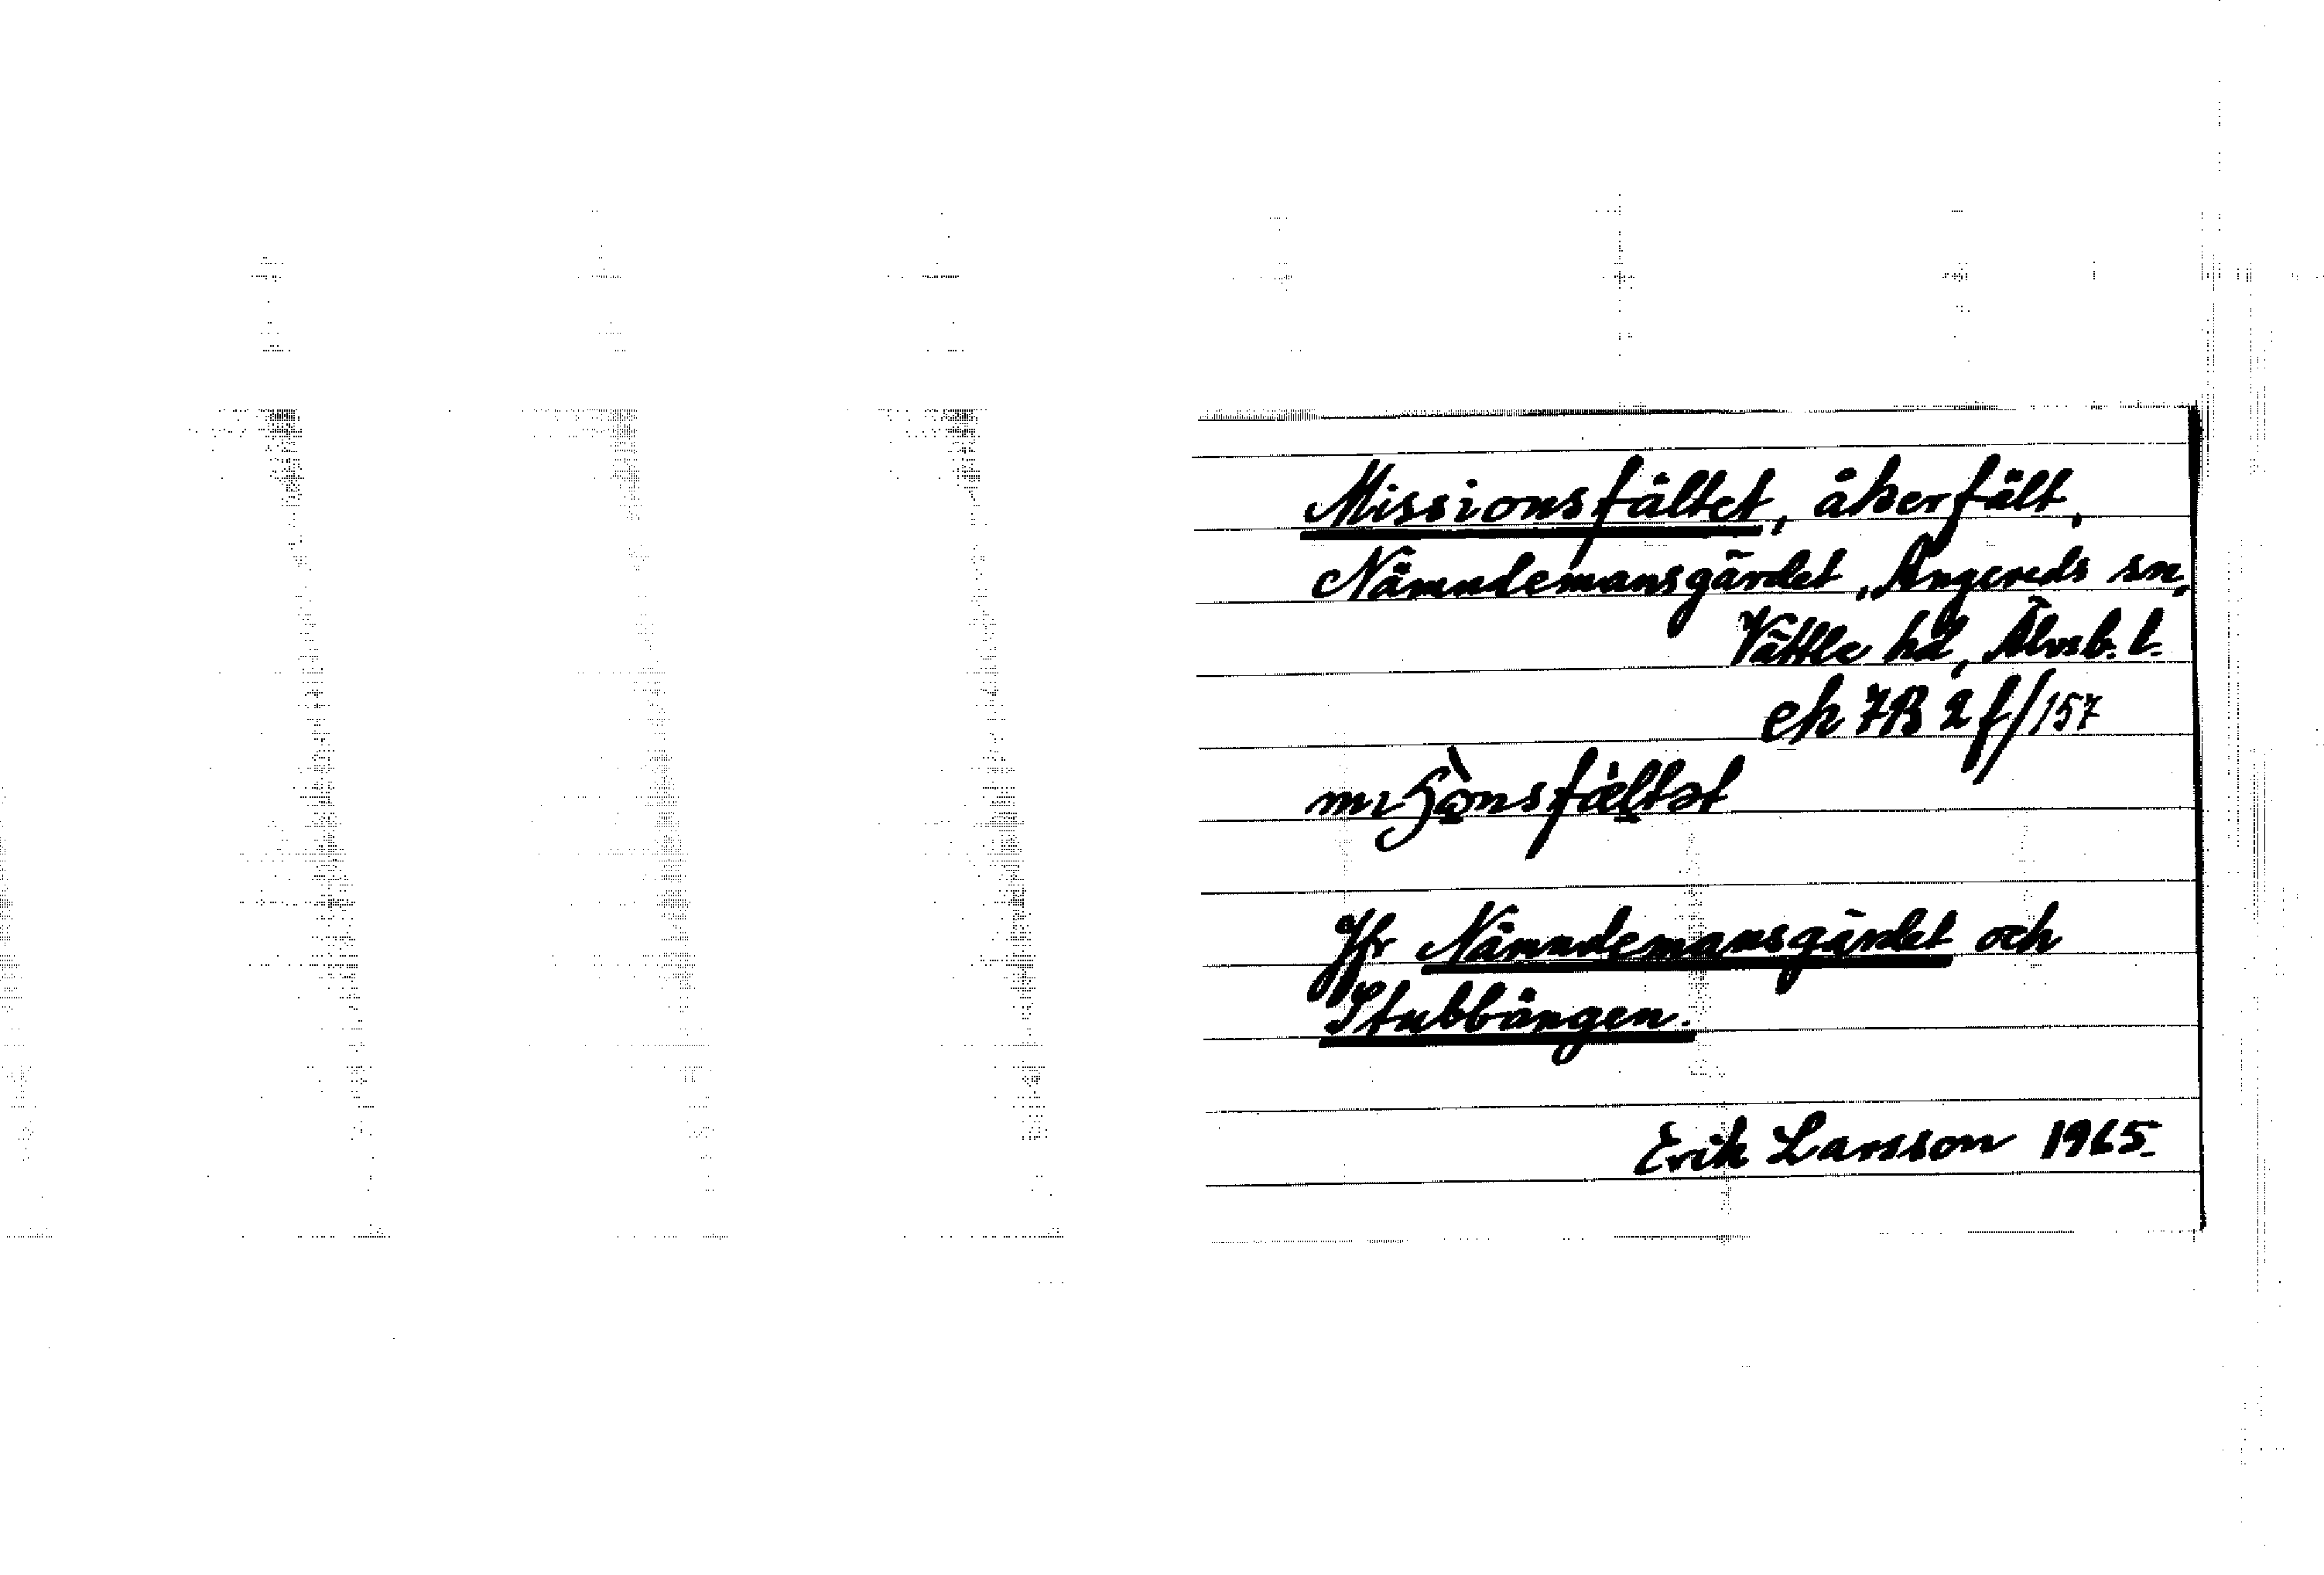 Missionsfältet, åkerfält,
Nämndemansgärdet, Angereds sn,
Vättle hd, Älvsb. l.
ek 7B 2f/157
Jfr Nämndemansgärdet och
Stubbängen.
Erik Larsson 1965.